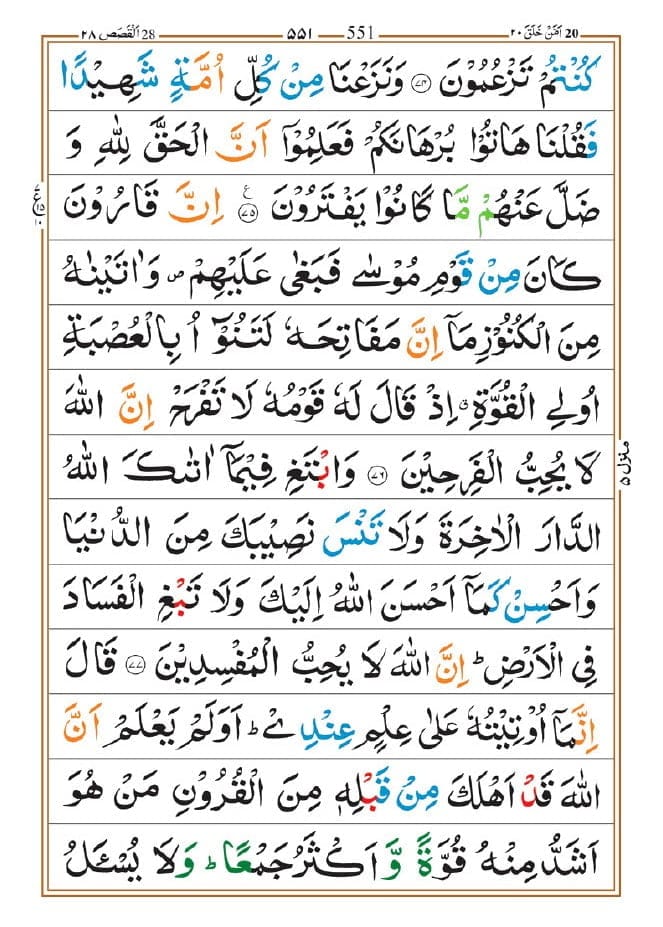 اَمَّنْ خَلَقَ ٢٠ 20 551 ٥٥١ اَلْقَصَص ٢٨ 28
كُنْتُمْ تَزْعُمُوْنَ ﴿٧٤﴾ وَنَزَعْنَا مِنْ كُلِّ اُمَّةٍ شَهِيْدًا
فَقُلْنَا هَاتُوْا بُرْهَانَكُمْ فَعَلِمُوْٓا اَنَّ الْحَقَّ لِلّٰهِ وَ
ضَلَّ عَنْهُمْ مَّا كَانُوْا يَفْتَرُوْنَ ﴿٧٥﴾ اِنَّ قَارُوْنَ
كَانَ مِنْ قَوْمِ مُوْسٰى فَبَغٰى عَلَيْهِمْ ۖ وَاٰتَيْنٰهُ
مِنَ الْكُنُوْزِ مَاۤ اِنَّ مَفَاتِحَهٗ لَتَنُوْٓاُ بِالْعُصْبَةِ
اُولِي الْقُوَّةِ ۤ اِذْ قَالَ لَهٗ قَوْمُهٗ لَا تَفْرَحْ اِنَّ اللّٰهَ
لَا يُحِبُّ الْفَرِحِيْنَ ﴿٧٦﴾ وَابْتَغِ فِيْمَاۤ اٰتٰىكَ اللّٰهُ
الدَّارَ الْاٰخِرَةَ وَلَا تَنْسَ نَصِيْبَكَ مِنَ الدُّنْيَا
وَاَحْسِنْ كَمَاۤ اَحْسَنَ اللّٰهُ اِلَيْكَ وَلَا تَبْغِ الْفَسَادَ
فِي الْاَرْضِ ؕ اِنَّ اللّٰهَ لَا يُحِبُّ الْمُفْسِدِيْنَ ﴿٧٧﴾ قَالَ
اِنَّمَاۤ اُوْتِيْتُهٗ عَلٰى عِلْمٍ عِنْدِيْ ؕ اَوَلَمْ يَعْلَمْ اَنَّ
اللّٰهَ قَدْ اَهْلَكَ مِنْ قَبْلِهٖ مِنَ الْقُرُوْنِ مَنْ هُوَ
اَشَدُّ مِنْهُ قُوَّةً وَّ اَكْثَرُ جَمْعًا ؕ وَلَا يُسْـَٔلُ
ع ١٥ ١٠
منزل ٥